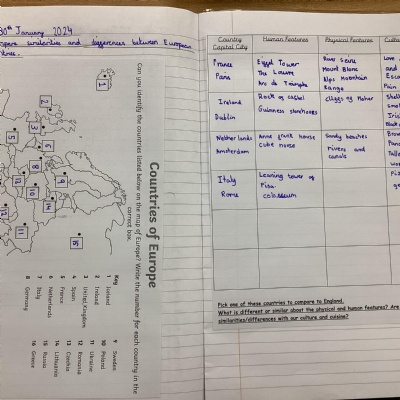 30th January 2024
similarities and differences between European
Countries of Europe
Can you identify the countries listed below on the map of Europe? Write the number for each country in the correct box.
Key
1 Iceland
2 Ireland
3 United Kingdom
4 Spain
5 France
6 Netherlands
7 Italy
8 Germany
9 Sweden
10 Poland
11 Ukraine
12 Romania
13 Czechia
14 Lithuania
15 Russia
16 Greece
1
2
3
6
5
8
9
13
10
14
12
11
15
Country Capital City
Human Features
Physical Features
France
Paris
Eiffel Tower
The Louvre
Arc de Triomphe
River Seine
Mount Blanc
Alps Mountain
Range
Love
and
Esca
Pain
Ireland
Dublin
Rock of cashel
Guinness storehouse
cliffs of Moher
Netherlands
Amsterdam
Anne frank house
cube house
Sandy beaches
Rivers and
canals
Italy
Rome
Leaning tower of
Pisa.
colosseum
Pick one of these countries to compare to England.
What is different or similar about the physical and human features? Are
similarities/differences with our culture and cuisine?